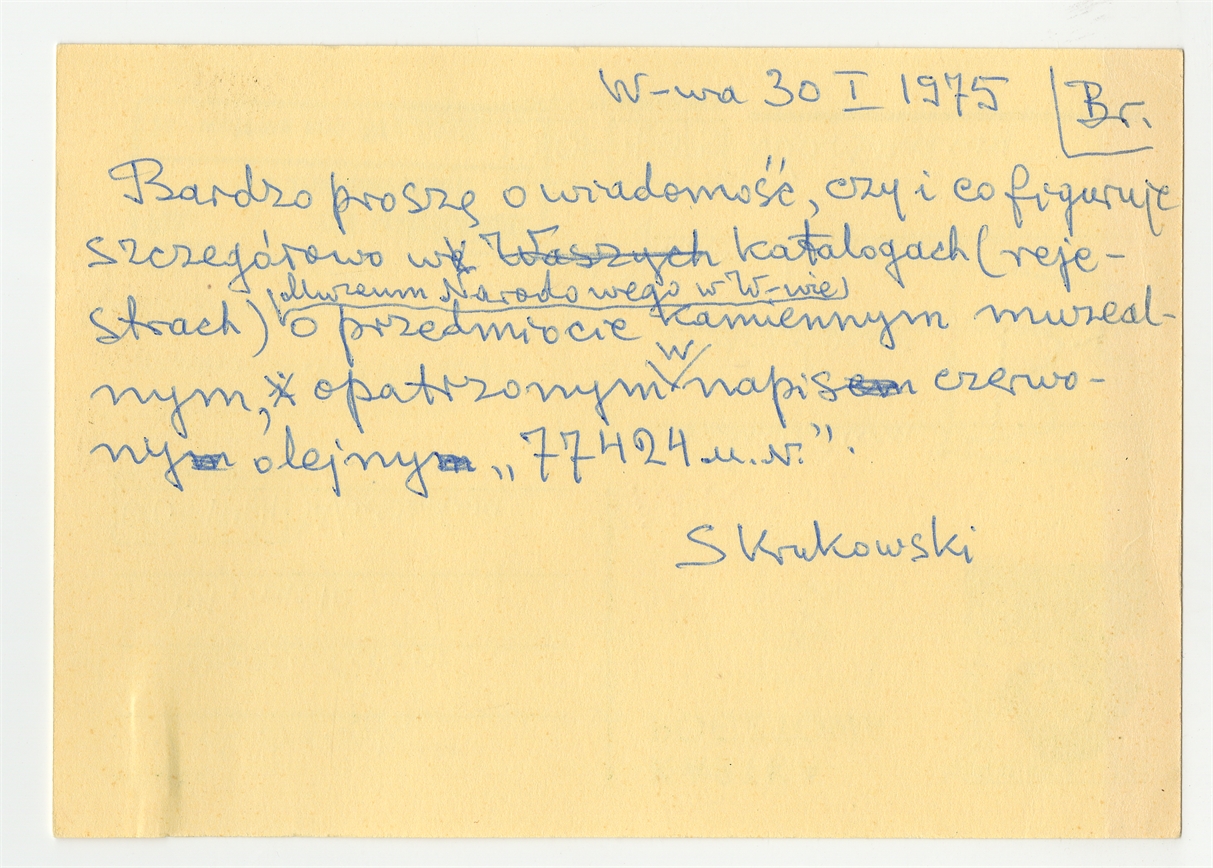 W-wa 30 I 1975 Br.
Bardzo proszę o wiadomość, czy i co figuruje
szczegółowo w Waszych katalogach (reje-
(Muzeum Narodowego w W-wie)
strach) o przedmiocie kamiennym muzeal-
w
nym, opatrzonym napis czerwo-
ny olejny „77424 M.N.”.
S Krukowski